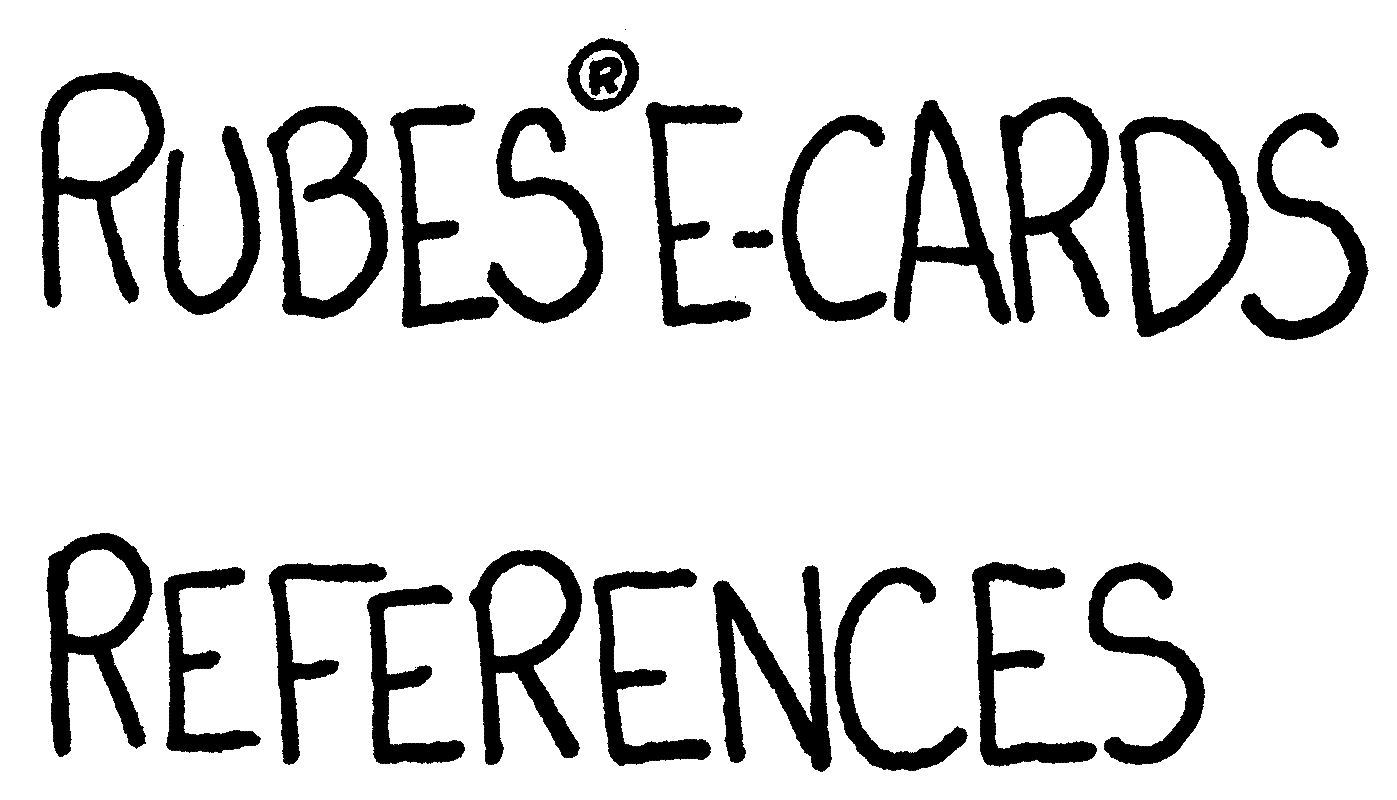 RUBES® E-CARDS
REFERENCES